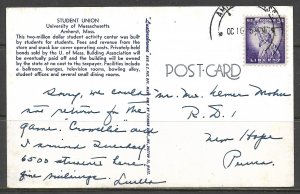 STUDENT UNION
University of Massachusetts
Amherst, Mass.
This two-million dollar student activity center was built
for students by students. Fees and revenue from the
store and snack bar cover operating costs. Privately-held
bonds sold by the U. of Mass. Building Association will
eventually be paid off and the building will be owned
by the state at no cost to the taxpayer. Facilities include
a ballroom, lounge, television rooms, bowling alley,
student offices and several small dining rooms.
POST-CARD
OC 16
LIBERTY
Sorry, we could
not return for the
game.
I arrived Sunday
6500 students here
fine buildings. Luella
Mr. Mrs. Homer
R.D.1
New Hope
Penna.